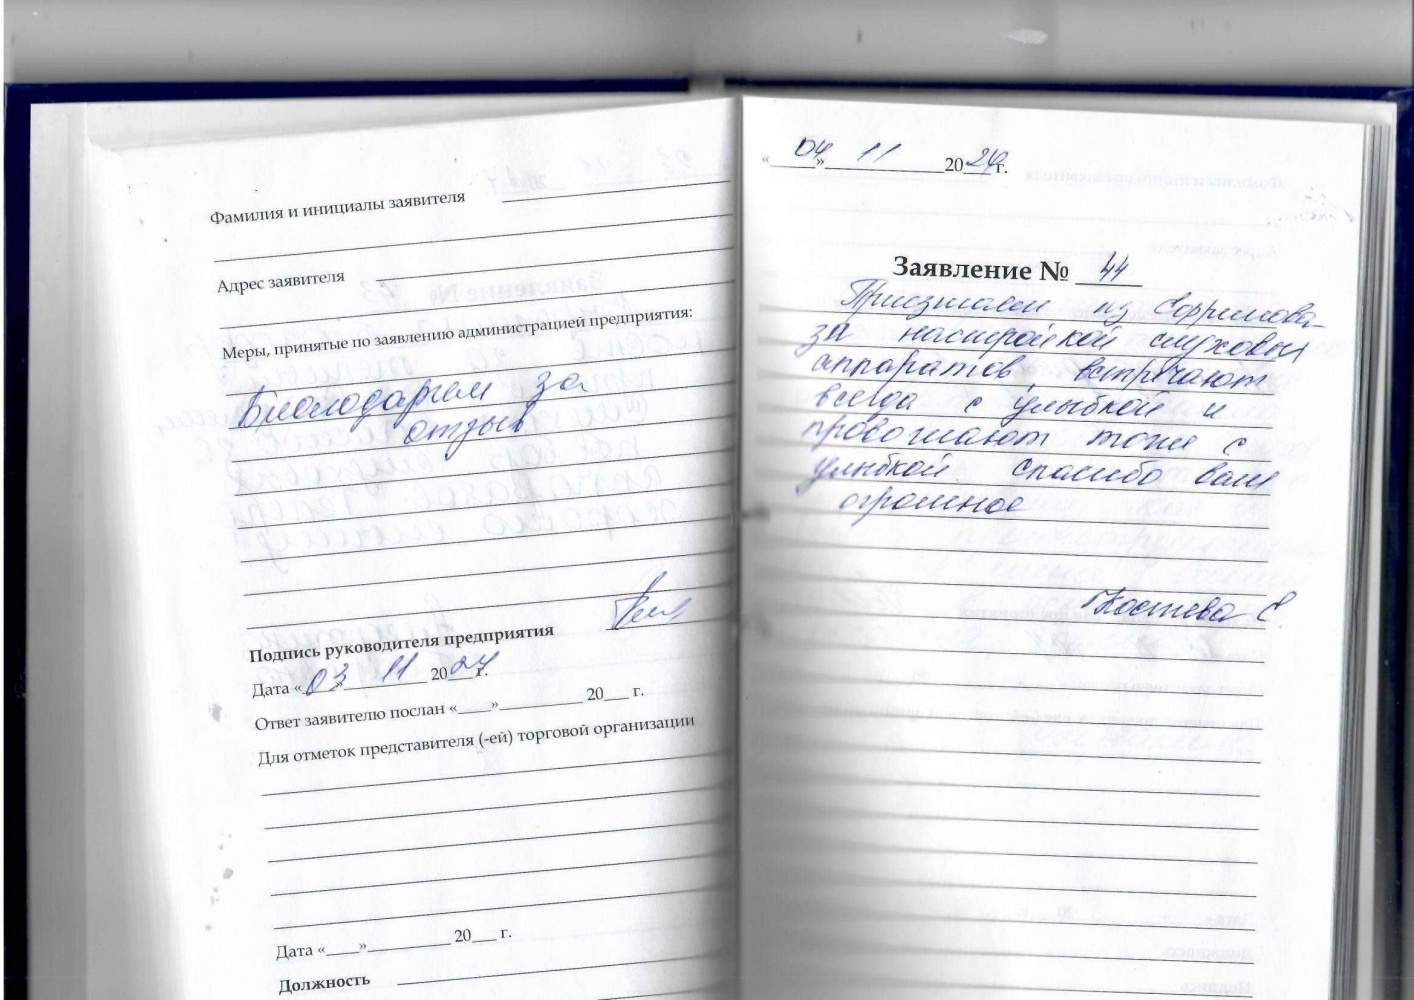 Фамилия и инициалы заявителя
Адрес заявителя
Меры, принятые по заявлению администрацией предприятия:
Благодарим за
отзыв
Подпись руководителя предприятия
Дата «03» 11 2024 г.
Ответ заявителю послан «____»__________ 20___ г.
Для отметок представителя (-ей) торговой организации
Дата «____»__________ 20___ г.
Должность
«04» 11 2024 г.
Заявление № 44
Приезжаем из Ефремова
за настройкой слуховых
аппаратов, встречают
всегда с улыбкой и
провожают тоже с
улыбкой. спасибо вам
огромное
Костева Е.